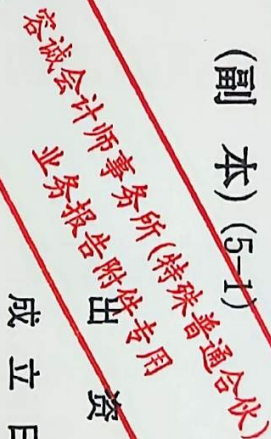 (副 本) (5-1)
容诚会计师事务所(特殊普通合伙)
业务报告附件专用
出 资
成 立 日